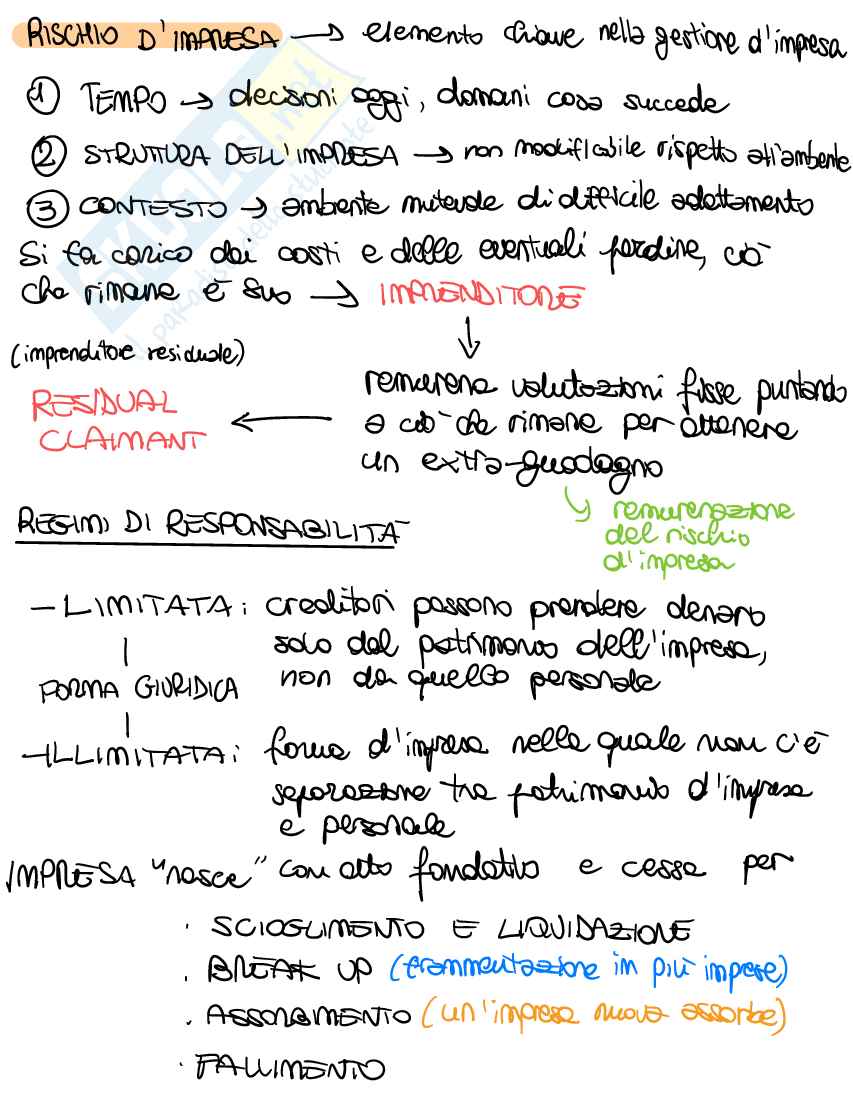 RISCHIO D'IMPRESA → elemento chiave nella gestione d'impresa
① TEMPO → decisioni oggi, domani cosa succede
② STRUTTURA DELL'IMPRESA → non modificabile rispetto all'ambente
③ CONTESTO → ambiente mutevole di difficile adattamento
Si fa carico dei costi e delle eventuali perdite, ciò
che rimane è suo → IMPRENDITORE
(imprenditore residuale)
remunera valutazioni fisse puntando
a ciò che rimane per ottenere
un extra-guadagno
RESIDUAL
CLAIMANT
remunerazione
del rischio
d'impresa
REGIMI DI RESPONSABILITÀ
- LIMITATA: creditori possono prendere denaro
solo dal patrimonio dell'impresa,
non da quello personale
FORMA GIURIDICA
- ILLIMITATA: forma d'impresa nella quale non c'è
separazione tra patrimonio d'impresa
e personale
IMPRESA "nasce" con atto fondativo e cessa per
· SCIOGLIMENTO E LIQUIDAZIONE
· BREAK UP (frammentazione in più imprese)
· ASSORBIMENTO (un'impresa nuova assorbe)
· FALLIMENTO
SKUOLA.net
il paradiso dello studente